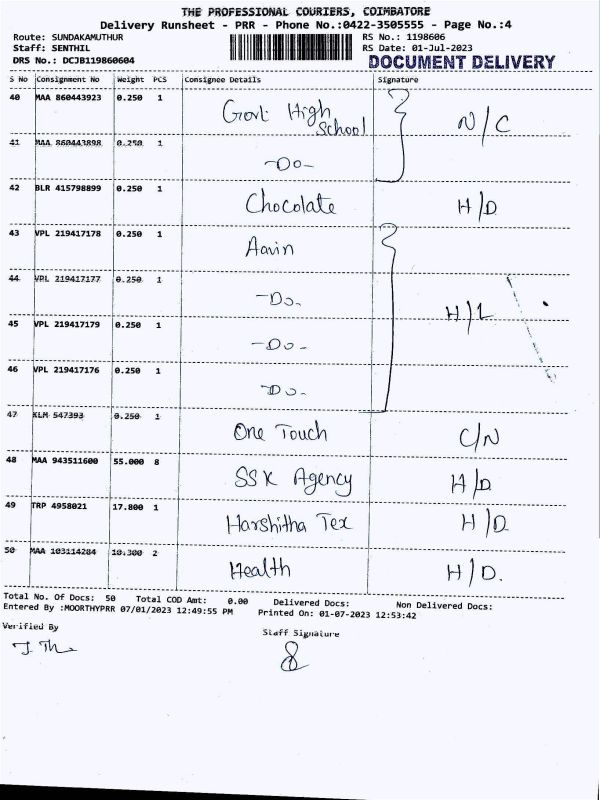 THE PROFESSIONAL COURIERS, COIMBATORE
Delivery Runsheet - PRR - Phone No.:0422-3505555 - Page No.:4
Route: SUNDAKAMUTHUR RS No.: 1198606
Staff: SENTHIL RS Date: 01-Jul-2023
DRS No.: DCJB119860604 DOCUMENT DELIVERY
S No Consignment No Weight PCS Consignee Details Signature
40 MAA 860443923 0.250 1 Govt High School N/C
41 MAA 860443898 0.250 1 -Do-
42 BLR 415798899 0.250 1 Chocolate H/D
43 VPL 219417178 0.250 1 Aavin
44 VPL 219417177 0.250 1 -Do. H/L
45 VPL 219417179 0.250 1 -Do-
46 VPL 219417176 0.250 1 Do.
47 KLM 547393 0.250 1 One Touch C/N
48 MAA 943511600 55.000 8 SSK Agency H/D
49 TRP 4958021 17.800 1 Harshitha Tex H/D
50 MAA 103114284 10.300 2 Health H/D.
Total No. Of Docs: 50 Total COD Amt: 0.00 Delivered Docs: Non Delivered Docs:
Entered By :MOORTHYPRR 07/01/2023 12:49:55 PM Printed On: 01-07-2023 12:53:42
Verified By Staff Signature